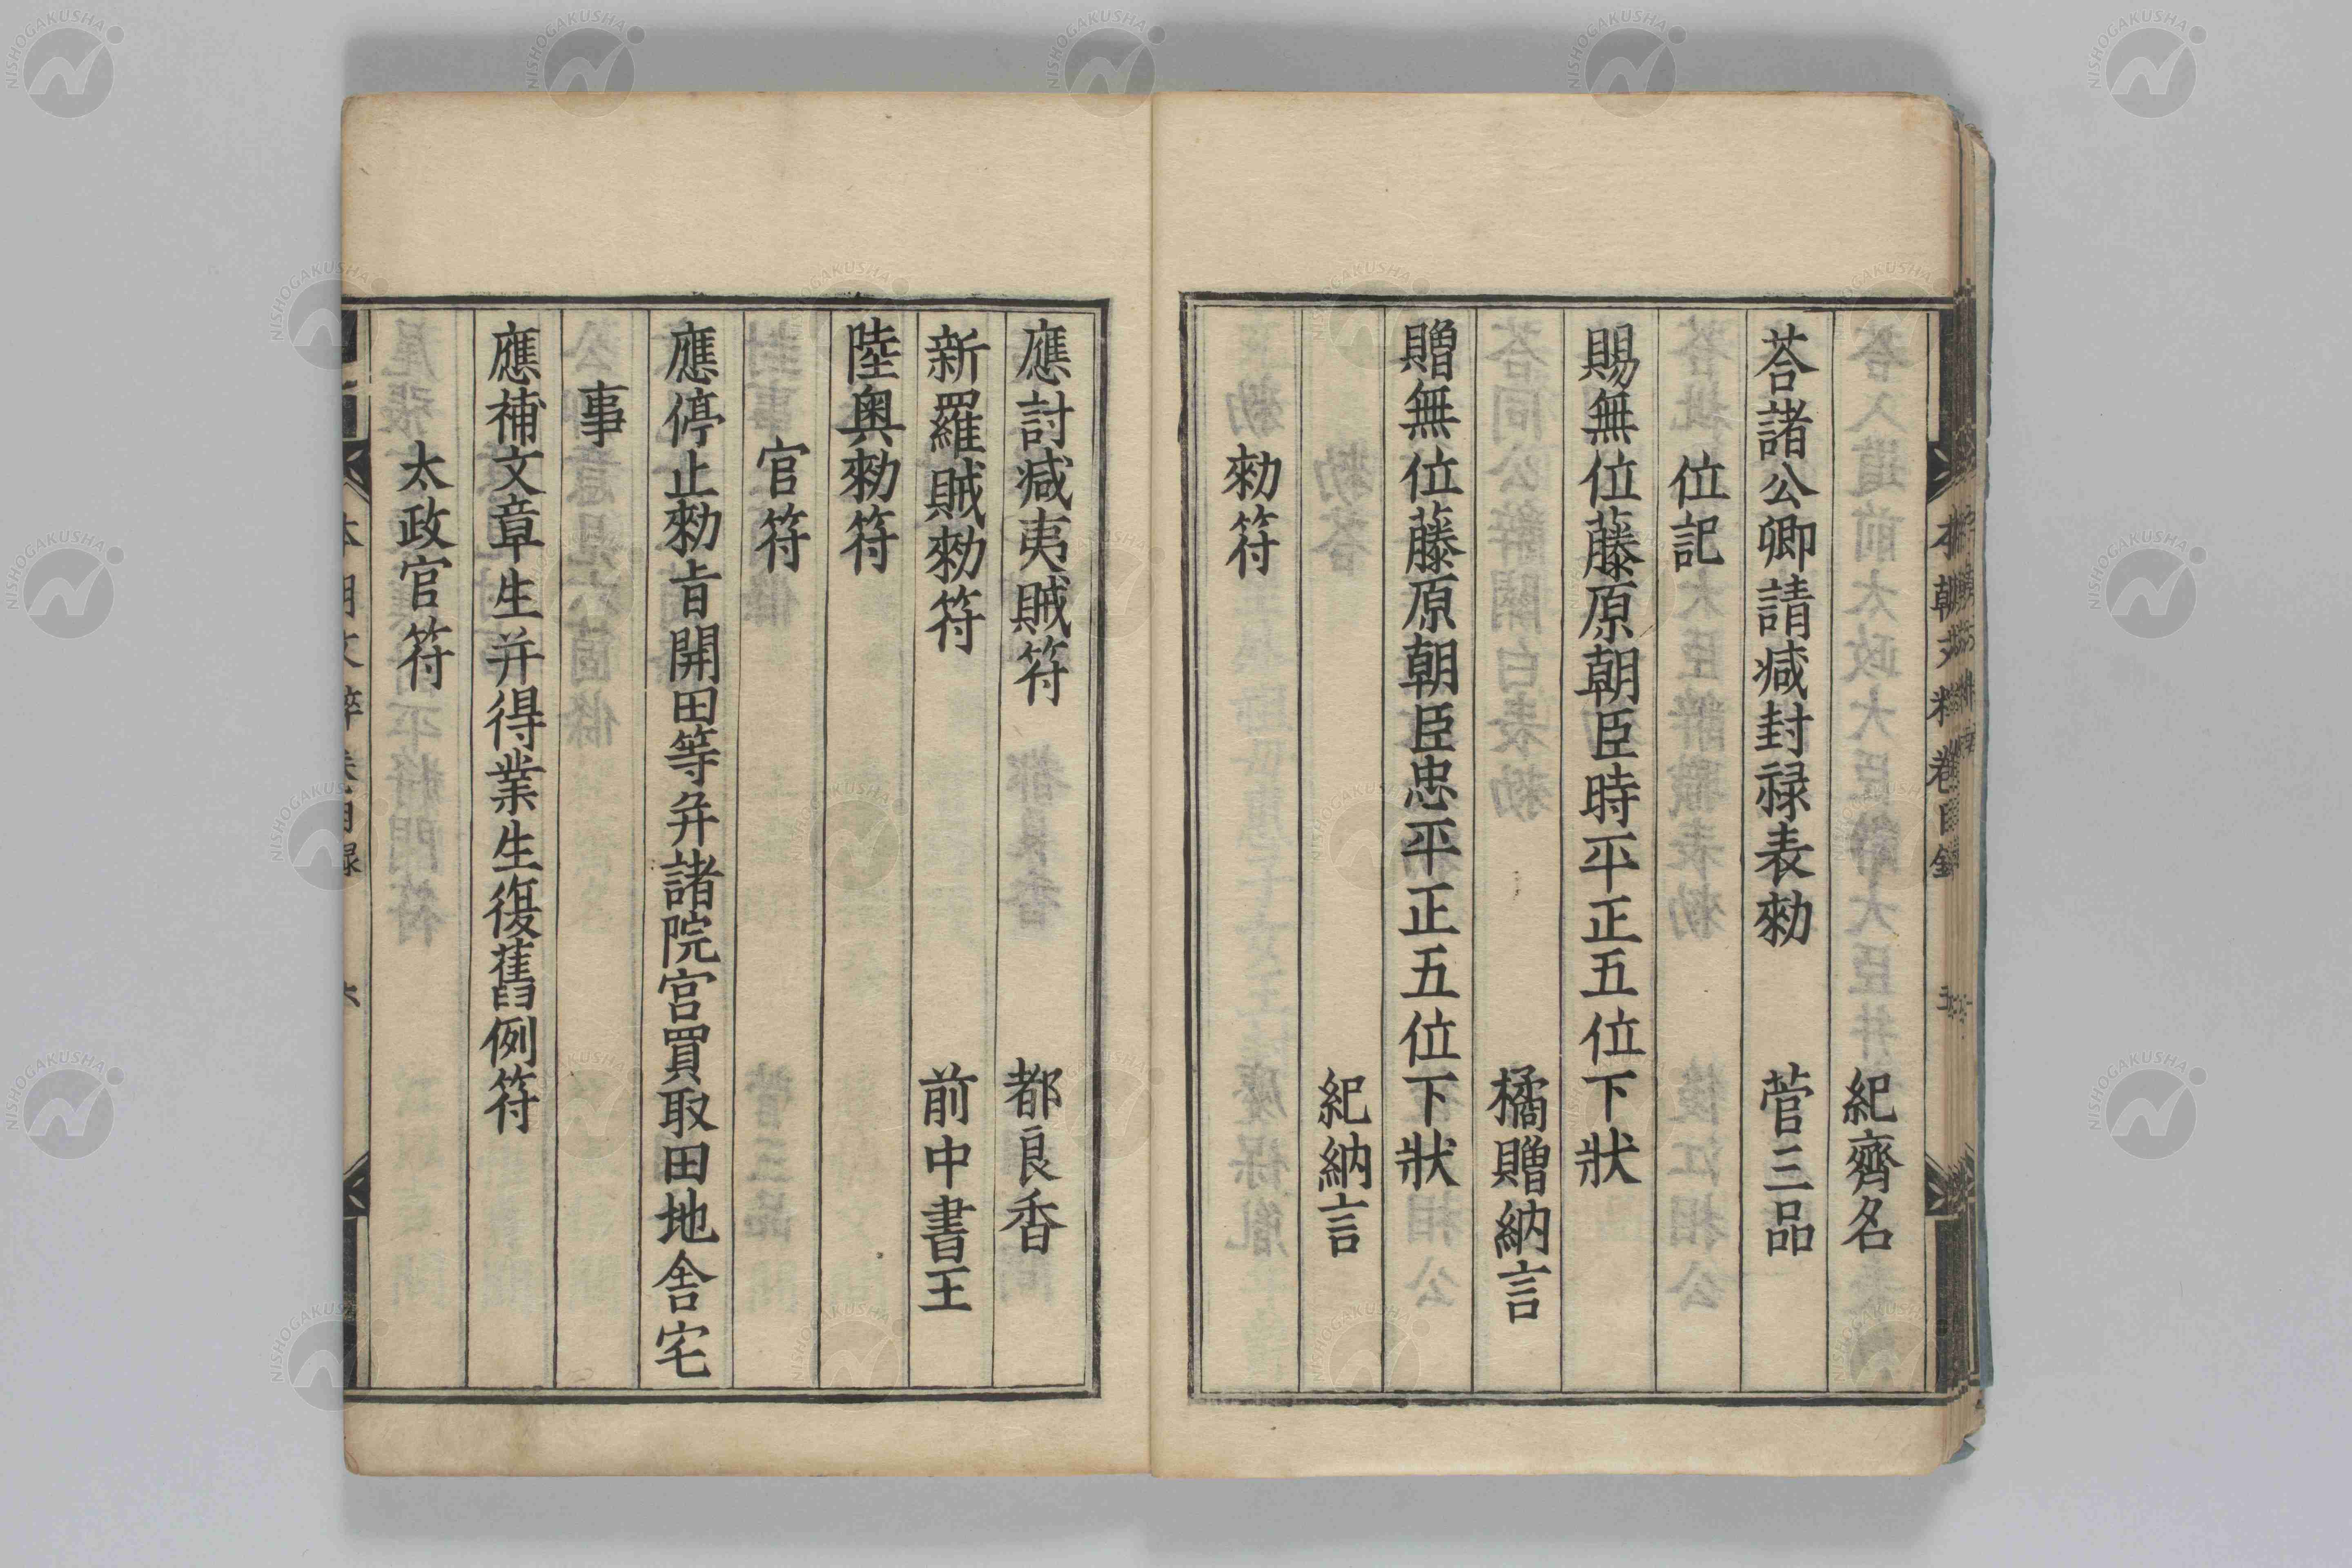 紀齊名
荅諸公卿請減封禄表勑 菅三品
位記
賜無位藤原朝臣時平正五位下狀
橘贈納言
贈無位藤原朝臣忠平正五位下狀
紀納言
勑符
應討滅夷賊符 都良香
新羅賊勑符 前中書王
陸奥勑符
官符
應停止勑旨開田等并諸院宮買取田地舎宅
事
應補文章生并得業生復舊例符
太政官符
本朝文粹卷目録
NISHOGAKUSHA